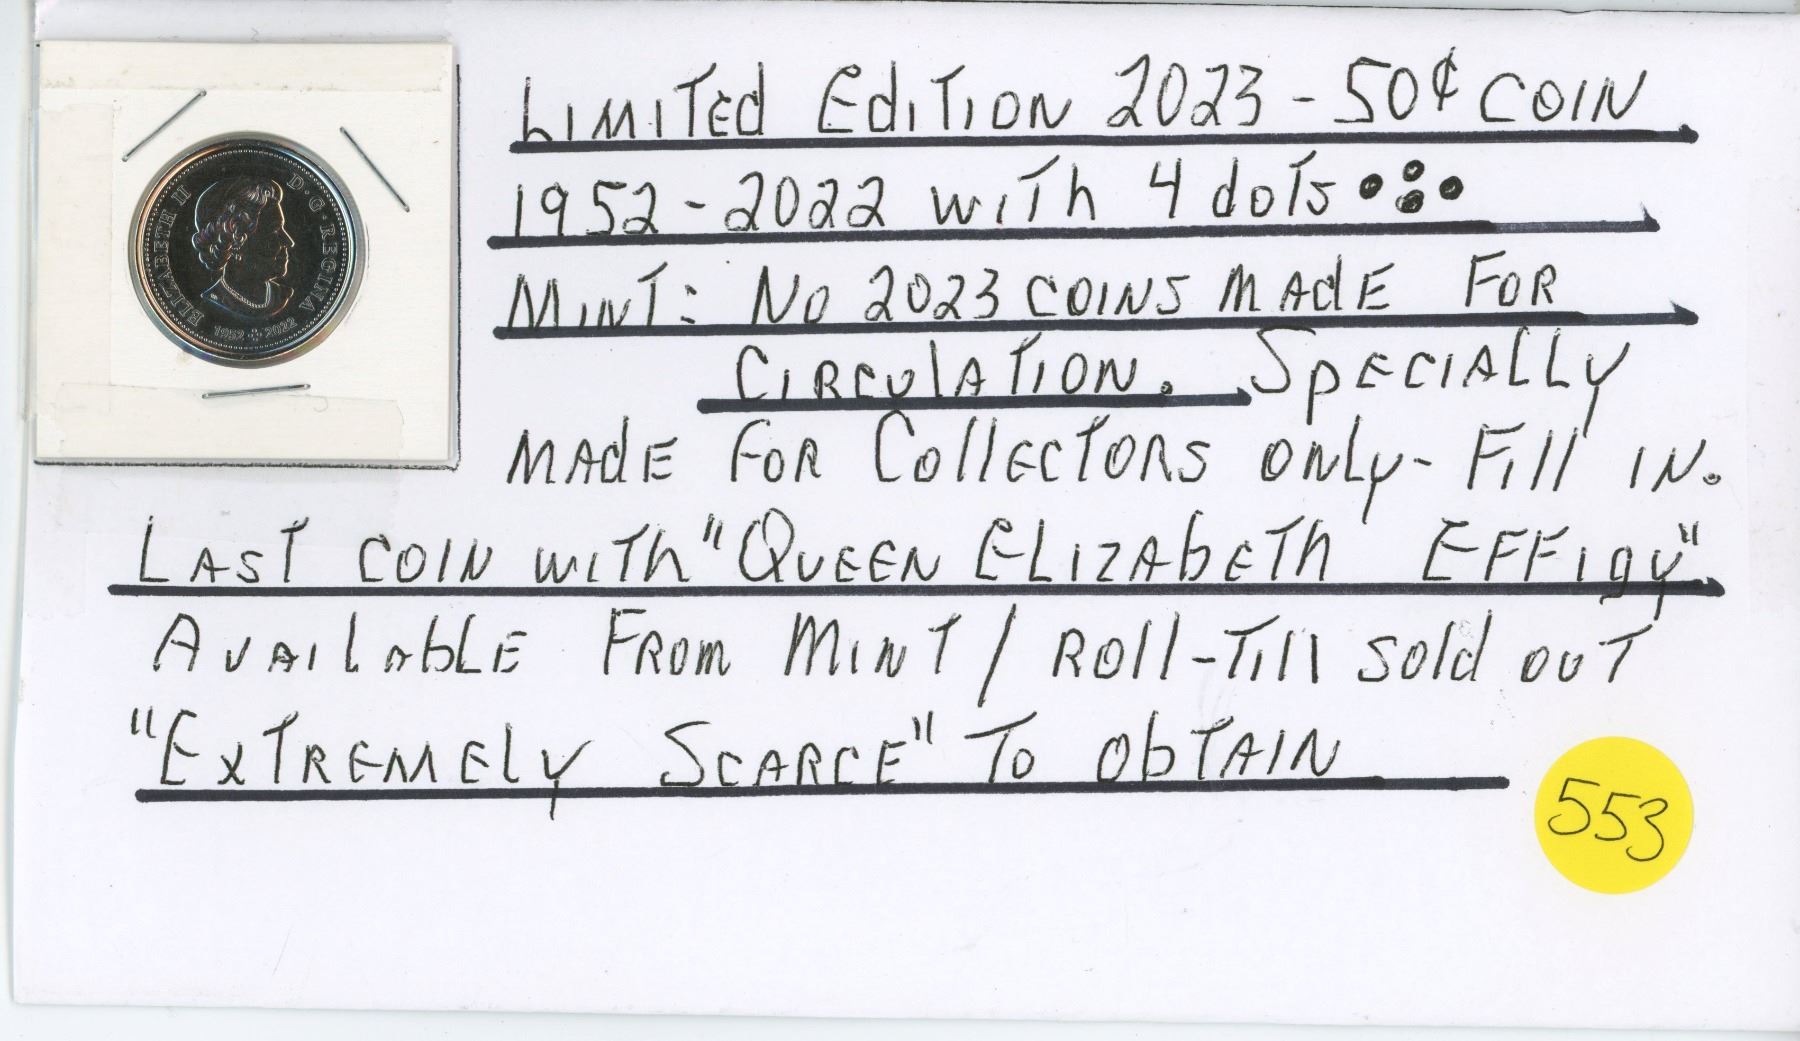 ELIZABETH II D·G·REGINA
1952 2022
Limited Edition 2023 - 50¢ COIN
1952-2022 with 4 dots
MINT: No 2023 COINS MADE FOR
CIRCULATION. SPECIALLY
MADE FOR COLLECTORS ONLY - FILL IN.
LAST COIN WITH "QUEEN ELIZABETH EFFIGY"
AVAILABLE FROM MINT / ROLL-TILL SOLD OUT
"EXTREMELY SCARCE" TO OBTAIN
553